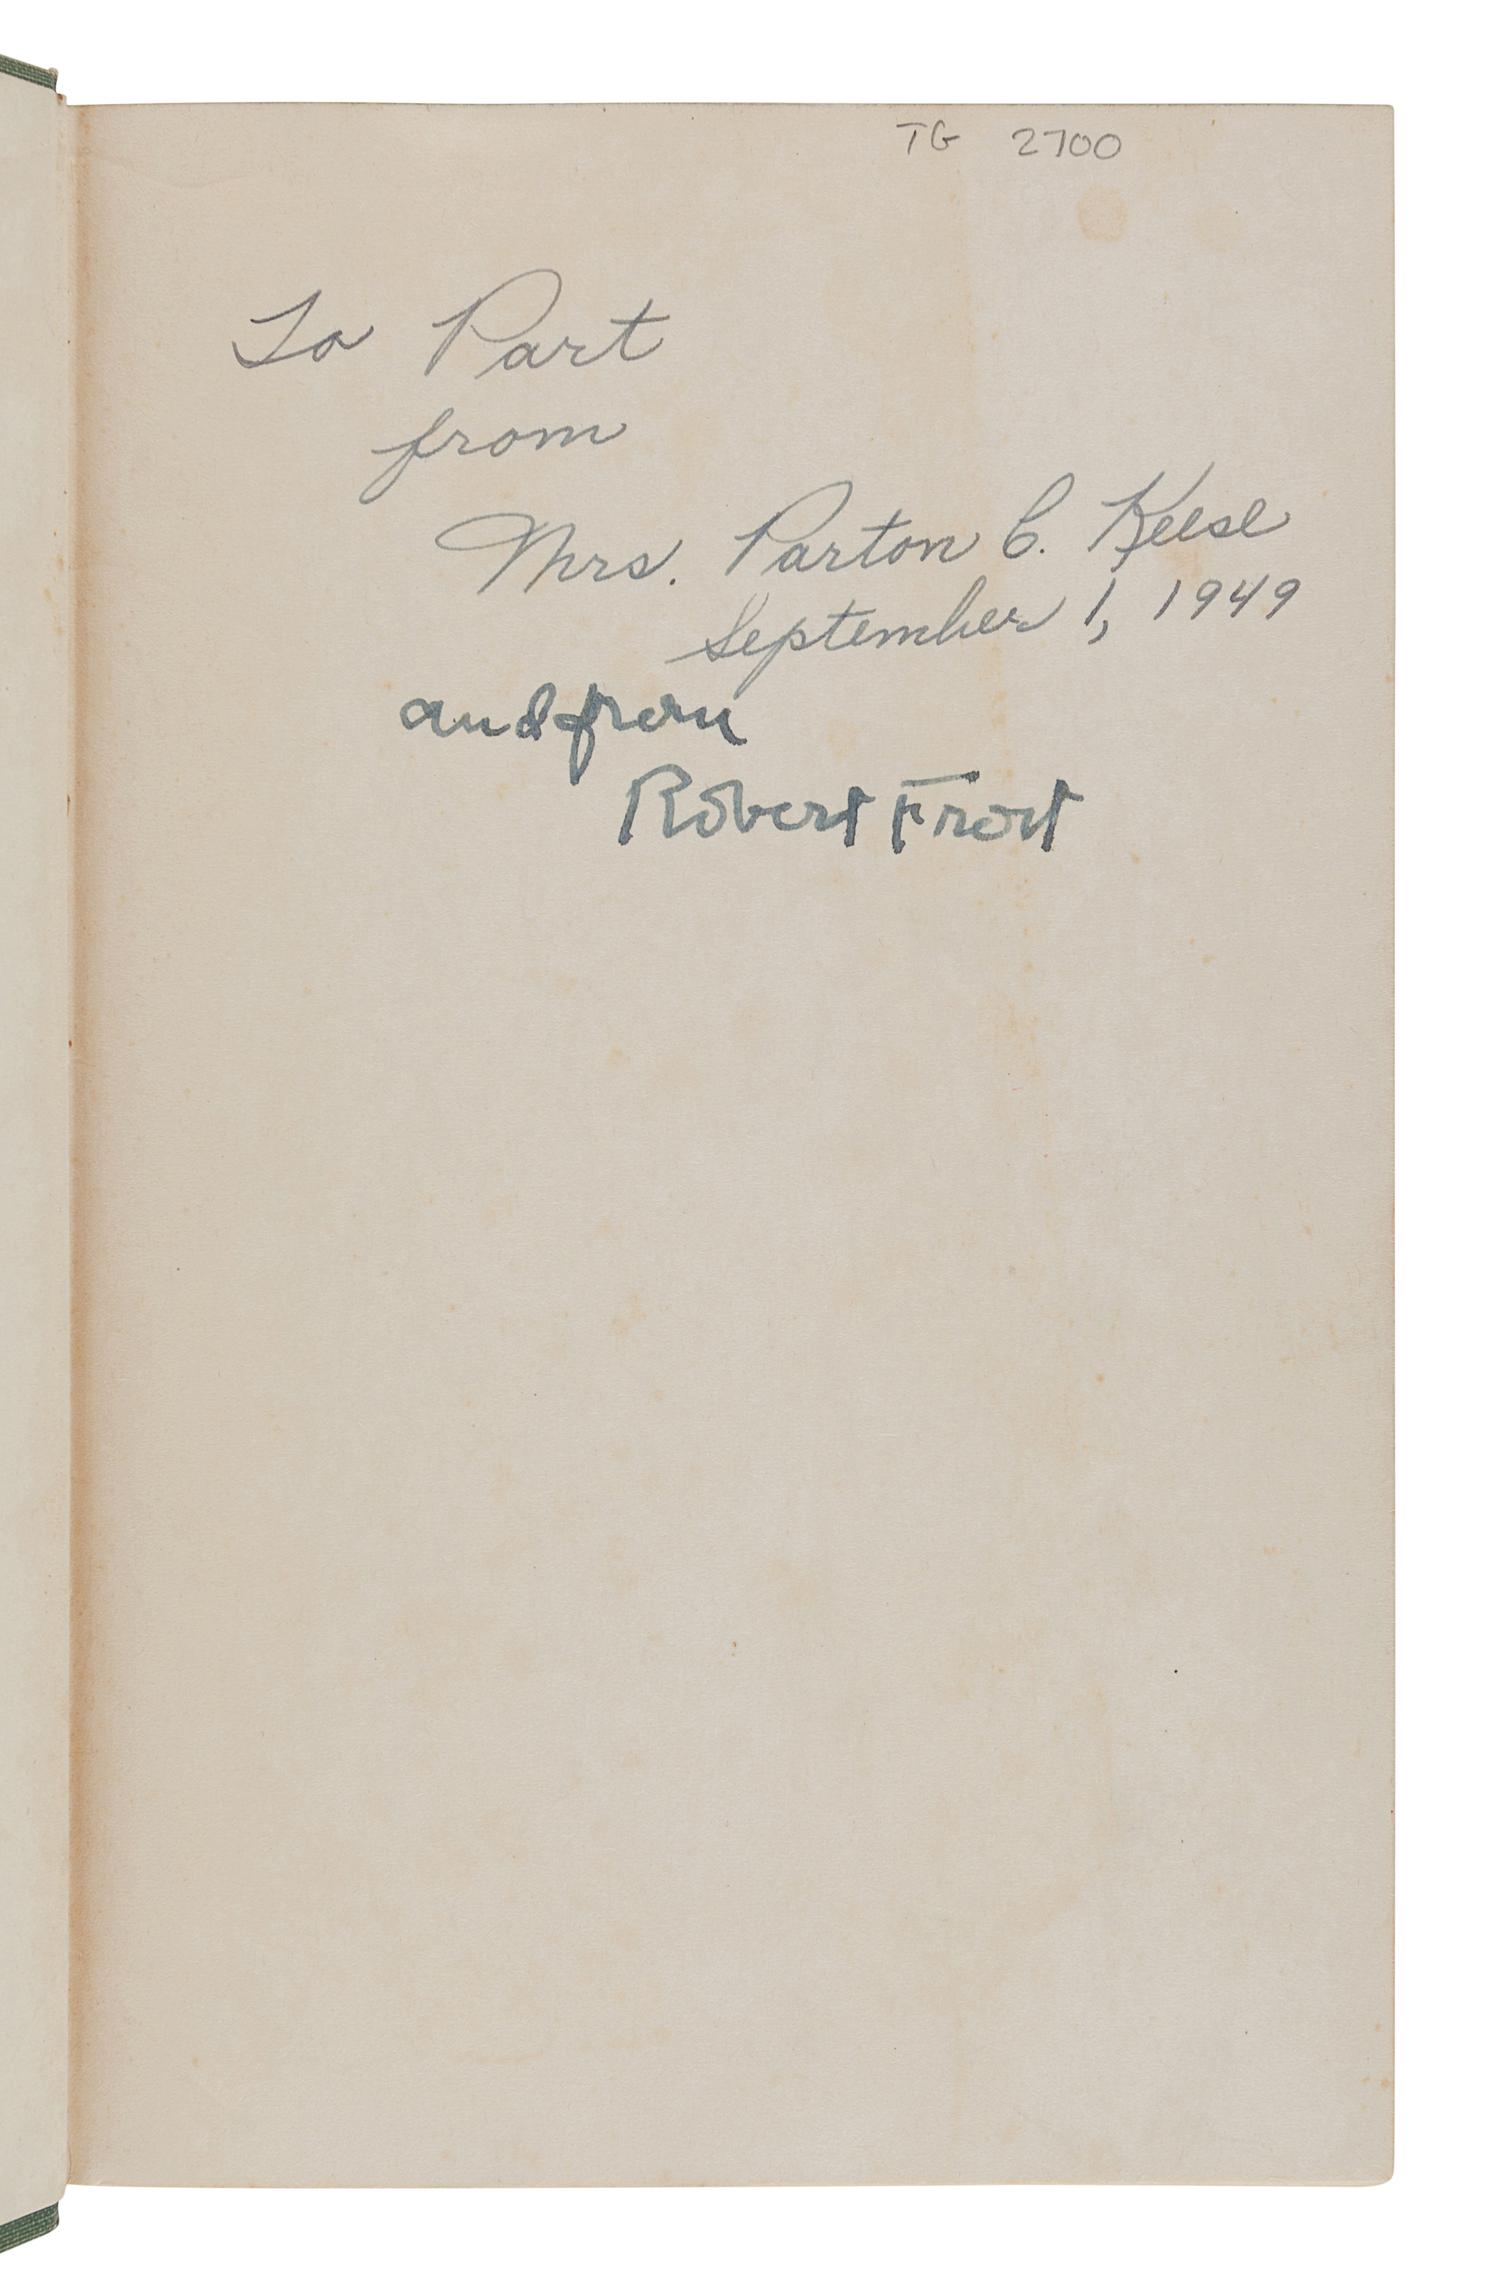 TG 2700
To Part
from
Mrs. Parton C. Keese
September 1, 1949
and from
Robert Frost